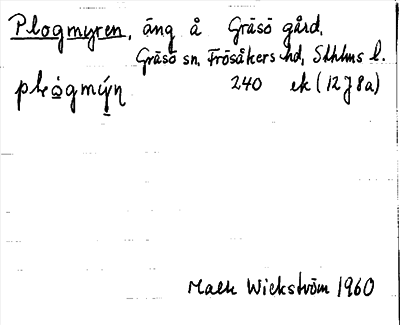 Plogmyren, äng å Gräsö gård,
Gräsö sn, Frösåkers hd, Sthlms l.
plo̱gmý̱n 240 ek (12J8a)
Mats Wickström 1960